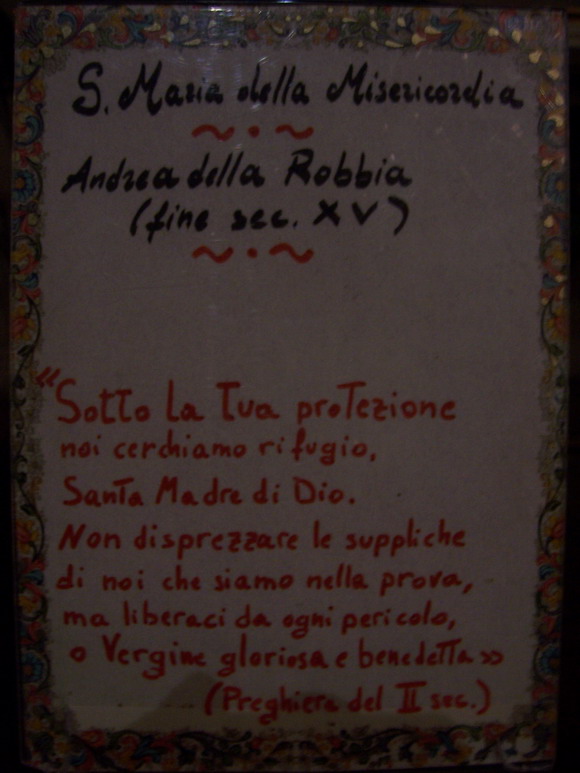 S. Maria della Misericordia
~ • ~
Andrea della Robbia
(fine sec. XV)
~ • ~
"Sotto la tua protezione
noi cerchiamo rifugio,
Santa Madre di Dio.
Non disprezzare le suppliche
di noi che siamo nella prova,
ma liberaci da ogni pericolo,
o Vergine gloriosa e benedetta»
(Preghiera del II sec.)